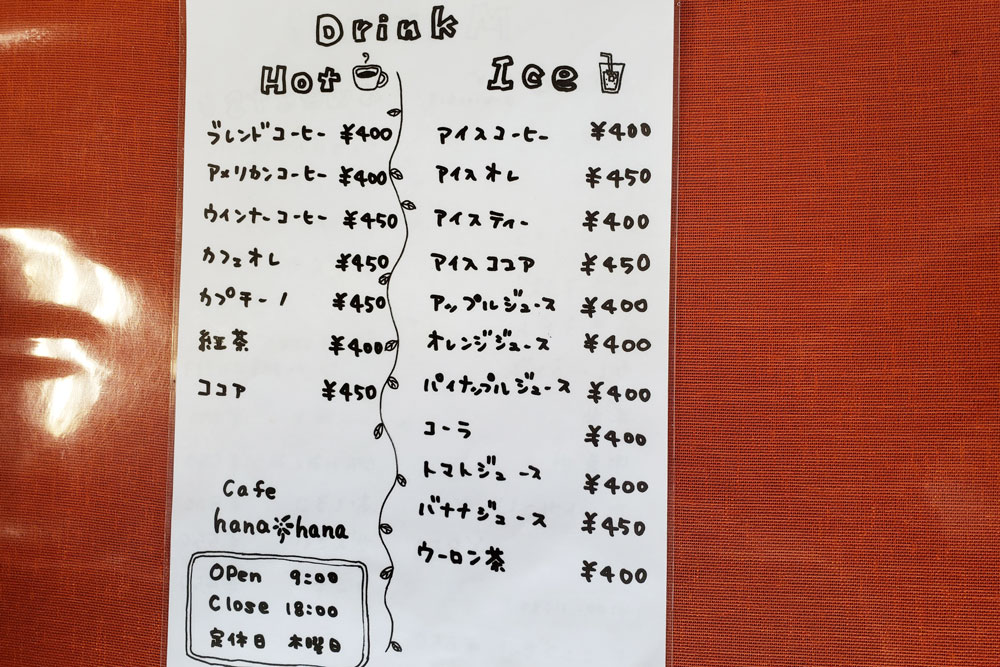 Drink
Hot
ブレンドコーヒー ¥400
アメリカンコーヒー ¥400
ウインナーコーヒー ¥450
カフェオレ ¥450
カプチーノ ¥450
紅茶 ¥400
ココア ¥450
Ice
アイスコーヒー ¥400
アイスオレ ¥450
アイスティー ¥400
アイスココア ¥450
アップルジュース ¥400
オレンジジュース ¥400
パイナップルジュース ¥400
コーラ ¥400
トマトジュース ¥400
バナナジュース ¥450
ウーロン茶 ¥400
Cafe
hana hana
OPen 9:00
Close 18:00
定休日 木曜日